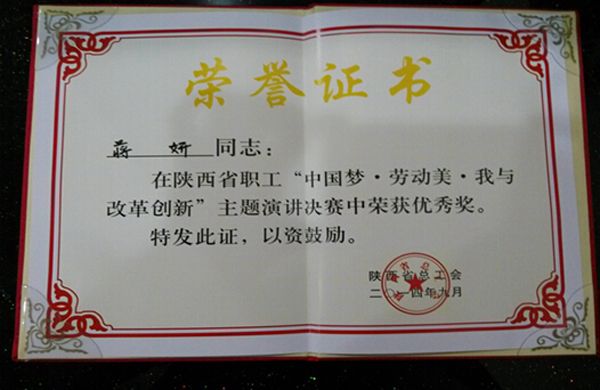 荣誉证书
蒋 妍 同志：
在陕西省职工“中国梦·劳动美·我与
改革创新”主题演讲决赛中荣获优秀奖。
特发此证，以资鼓励。
陕西省总工会
二〇一四年九月